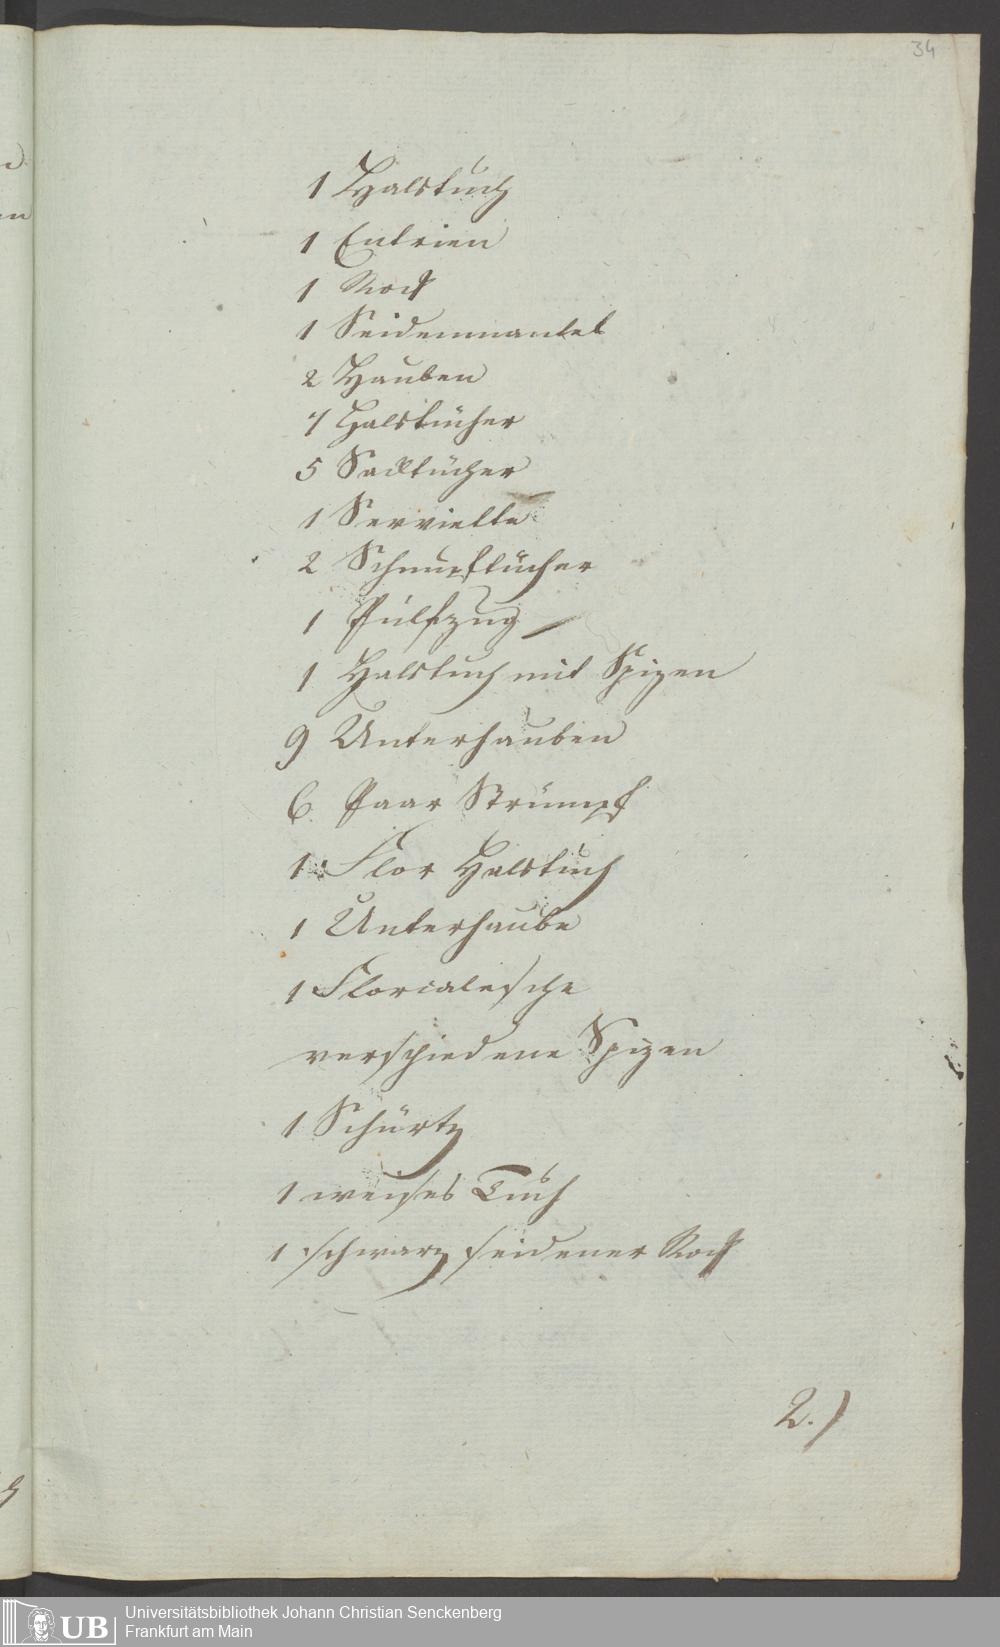 34
1 Halstuch
1 Entrien
1 Rock
1 Seidenmantel
2 Hauben
7 Halstücher
5 Sacktücher
1 Serviette
2 Schnupftücher
1 Pulfzug
1 Halstuch mit Spizen
9 Unterhauben
6 Paar Strümpf
1 Flor Halstuch
1 Unterhaube
1
verschiedene Spizen
1 Schürtz
1 weises Tuch
1 schwarz seidener Rock
2.)
UB
Universitätsbibliothek Johann Christian Senckenberg
Frankfurt am Main